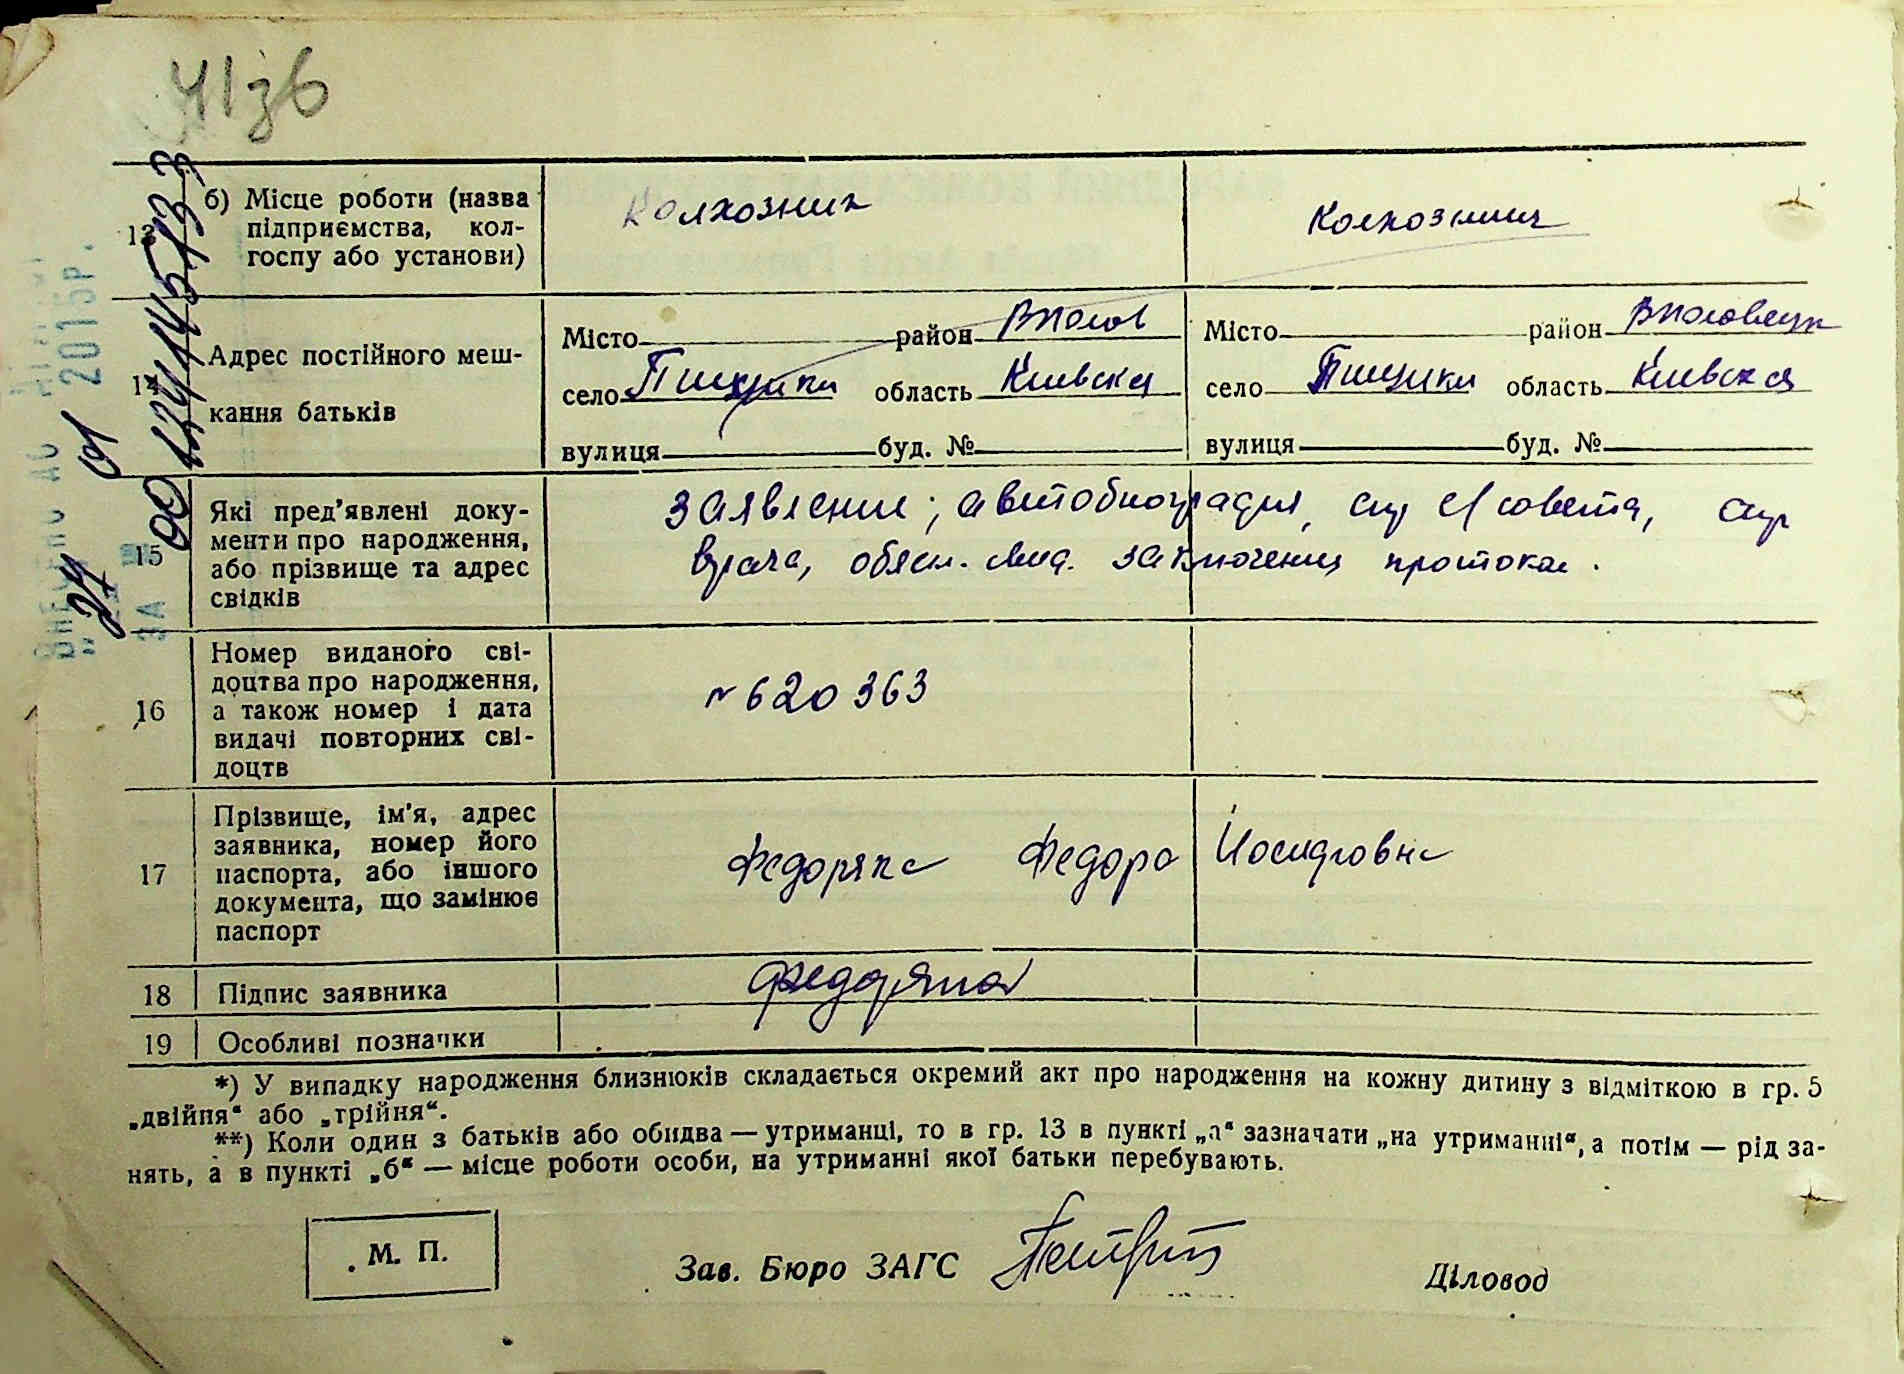 41зв
13
б) Місце роботи (назва
підприємства, кол-
госпу або установи)
Колхозник
Колхозница
14
Адрес постійного меш-
кання батьків
Місто район
село Пищики область Киевская
вулиця буд. №
Місто район
село Пищики область Киевская
вулиця буд. №
15
Які пред'явлені доку-
менти про народження,
або прізвище та адрес
свідків
Заявление; автобиография, спр с/совета, спр
врача, обясн. заключения протокол.
16
Номер виданого сві-
доцтва про народження,
а також номер і дата
видачі повторних сві-
доцтв
№ 620363
17
Прізвище, ім'я, адрес
заявника, номер його
паспорта, або іншого
документа, що замінює
паспорт
Федоряка Федора Йосифовна
18 Підпис заявника
Федоряка
19 Особливі позначки
*) У випадку народження близнюків складається окремий акт про народження на кожну дитину з відміткою в гр. 5
„двійня“ або „трійня“.
**) Коли один з батьків або обидва — утриманці, то в гр. 13 в пункті „а“ зазначати „на утриманні“, а потім — рід за-
нять, а в пункті „б“ — місце роботи особи, на утриманні якої батьки перебувають.
М. П.
Зав. Бюро ЗАГС
Діловод
2015р.
27 01
ЗА №